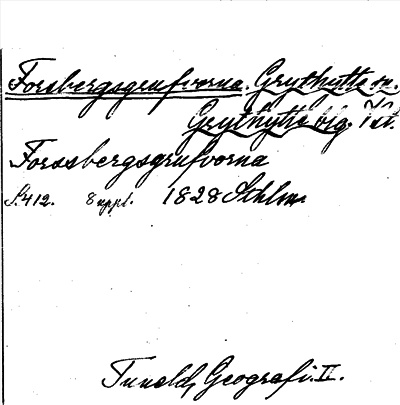 Forsbergsgrufvorna. Grythytte sn.
Grythytte blg. Vstl.
Forssbergsgrufvorna
S. 412. 8 uppl. 1828 Sthlm
Tuneld, Geografi. II.